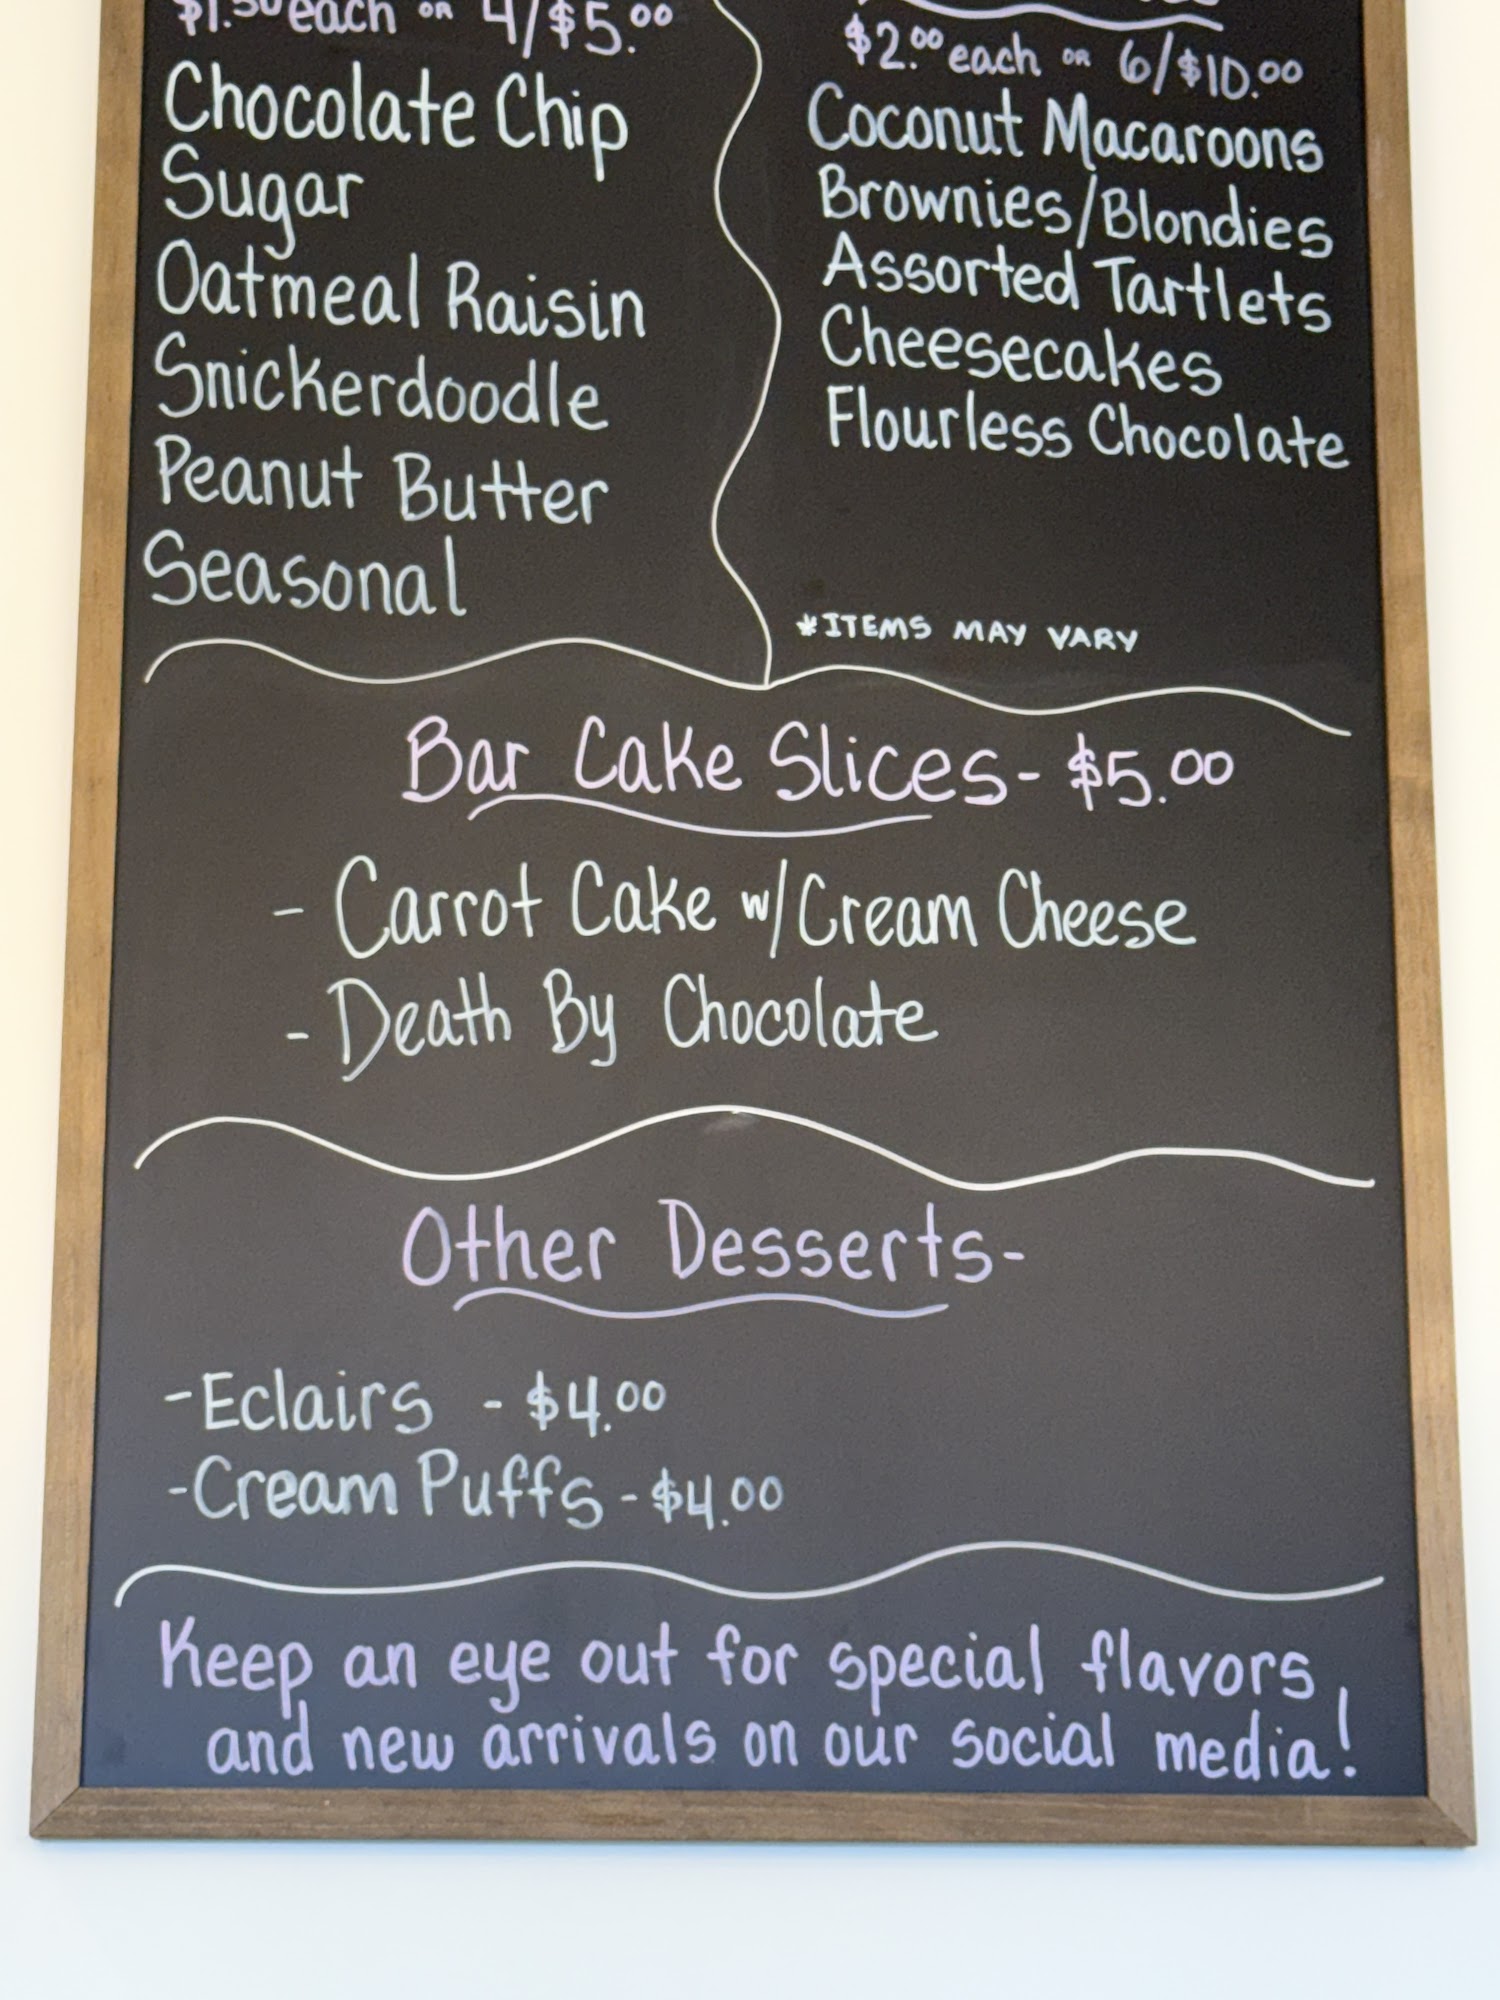 $1.50 each OR 4/$5.00
Chocolate Chip
Sugar
Oatmeal Raisin
Snickerdoodle
Peanut Butter
Seasonal
$2.00 each OR 6/$10.00
Coconut Macaroons
Brownies/Blondies
Assorted Tartlets
Cheesecakes
Flourless Chocolate
*ITEMS MAY VARY
Bar Cake Slices- $5.00
- Carrot Cake w/Cream Cheese
- Death By Chocolate
Other Desserts-
-Eclairs - $4.00
-Cream Puffs - $4.00
Keep an eye out for special flavors
and new arrivals on our social media!